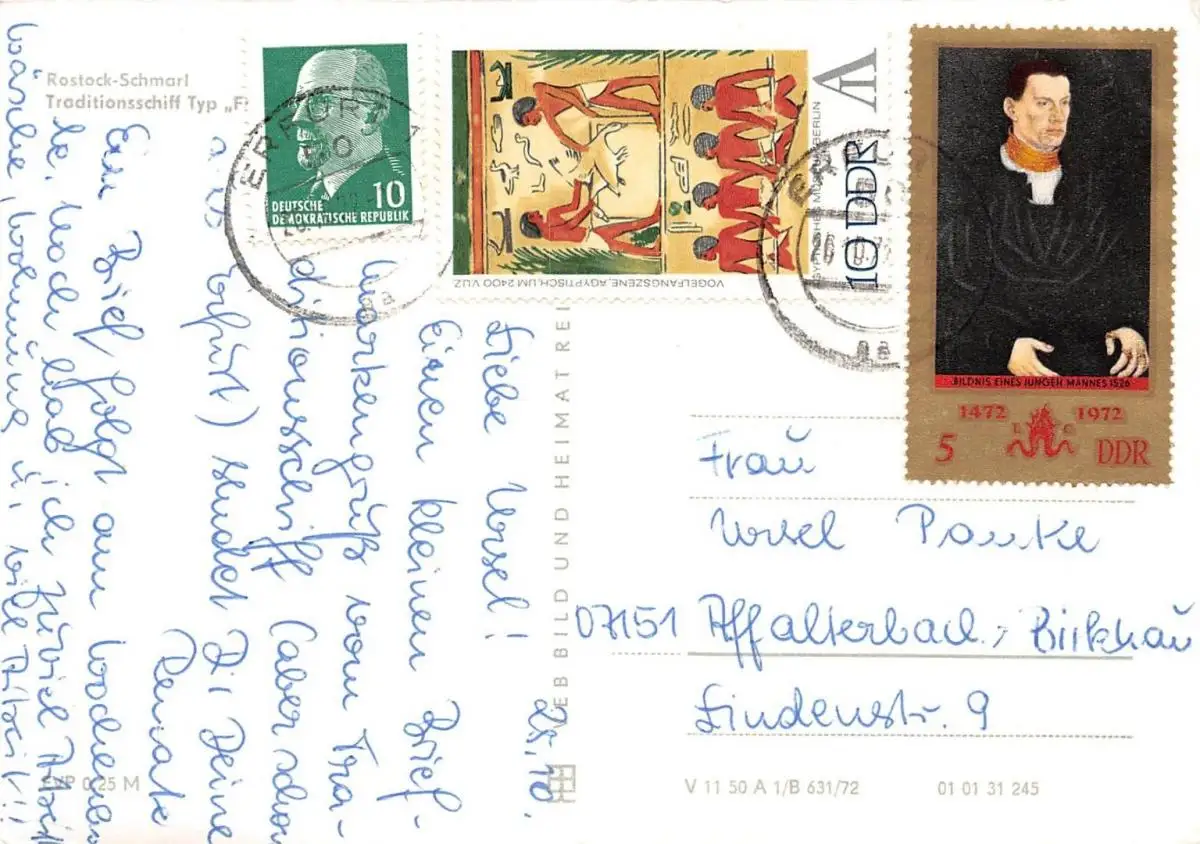 Rostock-Schmarl
Traditionsschiff Typ „F
25.10.
Liebe Ursel!
Einen kleinen Brief-
markengruß vom Tra-
ditionsschiff (aber schon
aus Erfurt) sendet Dir Deine
Renate
Ein Brief folgt am Wochenen
de. Noch hab ich zuviel Arbeit
Wäsche, Wohnung u.
EVP 0,25 M
EB BILD UND HEIMAT REI
ERFURT
10
DEUTSCHE
DEMOKRATISCHE REPUBLIK
VOGELFANGSZENE, ÄGYPTISCH, UM 2400 V.U.Z.
10 DDR
BILDNIS EINES JUNGEN MANNES 1526
1472 1972
L C
5 DDR
Frau
Ursel Panke
07151 Affalterbach, Birkhau
Lindenstr. 9
V 11 50 A 1/B 631/72
01 01 31 245